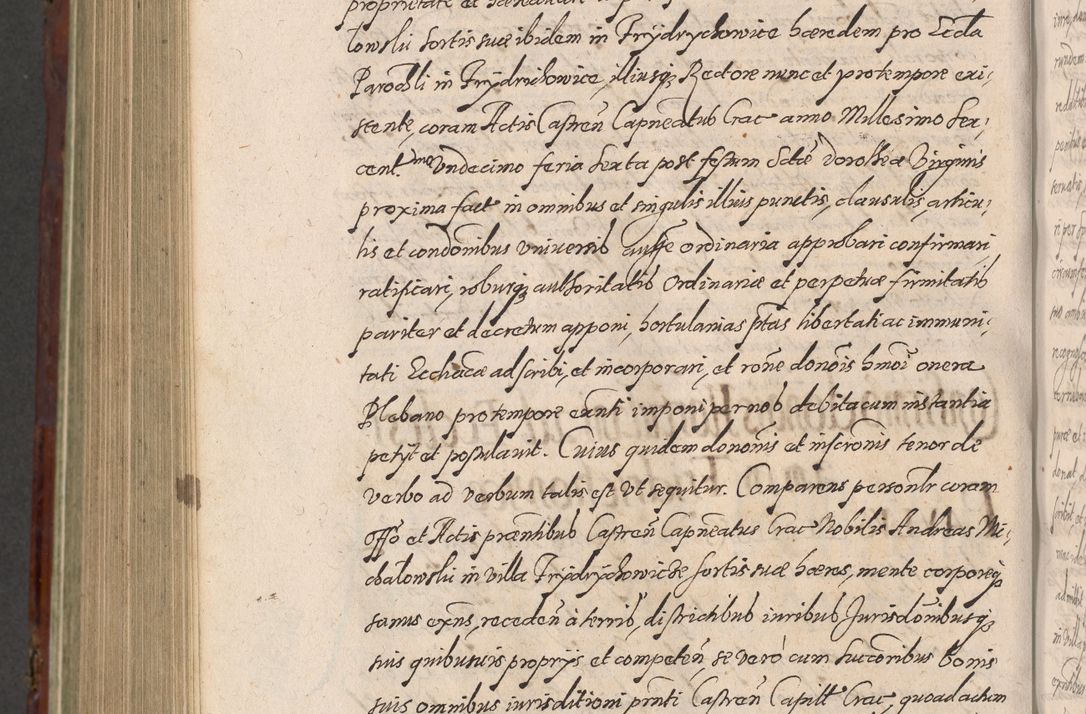 lowslii sortis suæ ibidem in Frydrychowice hæredem pro Eccla
Paroch̃li in Frydrichowice, illiusq; Rectore nunc et pro tempore exi-
stente, coram Actis Castreñ Capneatus Crac anno Millesimo Sex-
cent.mo Undecimo feria sexta post festum Sctæ Dorotheæ Virginis
proxima fact in omnibus et singulis illius punctis, clausulis, articu-
lis et condõnibus universis autẽ ordinaria approbari confirmari
ratificari, roburq; authoritatis Ordinariæ et perpetuæ firmitatis
pariter et decretum apponi, hortulanias p̃tas libertati ac immuni-
tati Ecchiacæ adscribi, et incorporari, et rone donõis hmõi onera
Plebano pro tempore exñti imponi per nos debita cum instantia
petijt et postulavit. Cuius quidem donõnis et inscrõnis tenor de
verbo ad verbum talis est ut sequitur. Comparens personlr coram
Offõ et Actis præntibus Castreñ Capneatus Crac Nobilis Andreas Mi-
chalowslii in villa Frydrychowicze sortis suæ hæres, mente corporeq;
sanus exñs, recedeñ à terris, districtibus iuribus Jurisdõnibusq;
suis quibusvis proprijs et competeñ, se verò cum succõribus bonis
suis omnibus iurisditioni prñti Castreñ Capitt Crac, quoad actum